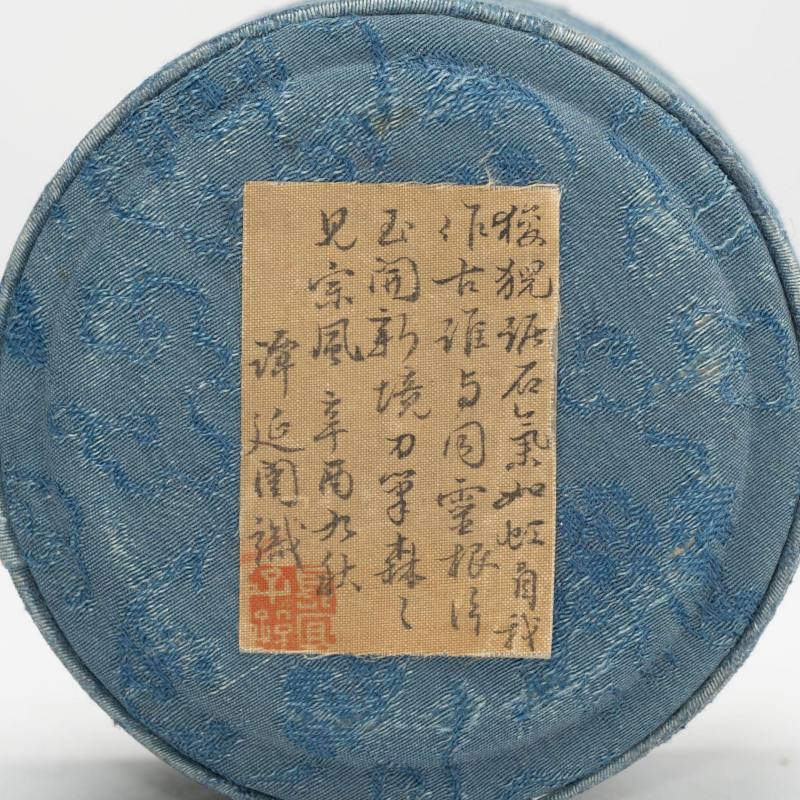 狻猊踞石氣如虹自我
作古誰与同靈根片
玉開新境刀筆森々
見宗風辛酉九秋
譚延闓識